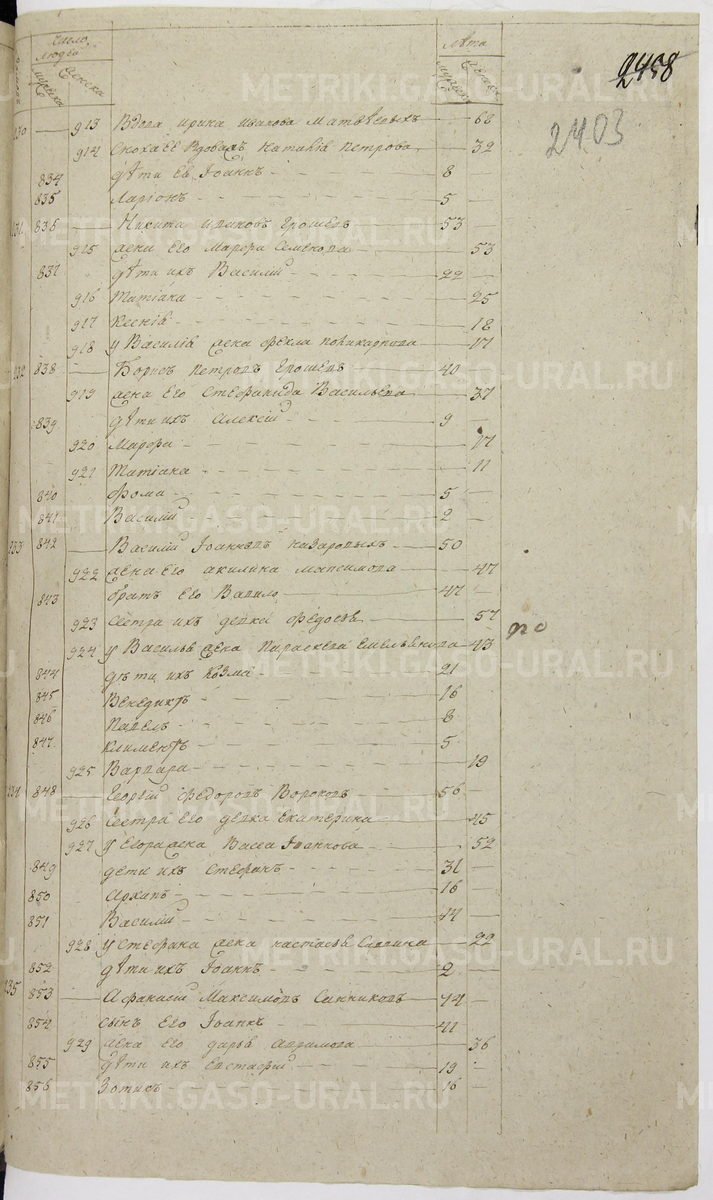 Число людей
Лѣта
мужска
женска
2458
2403
130 913 Вдова ирина иванова Матвѣевыхъ 68
914 Сноха ее Вдова жъ Наталiя Петрова 32
834 дѣти ея Iоаннъ 8
835 Ларiонъ 5
131 836 Никита ивановъ Ерошевъ 53
915 жена его Марфа Семенова 53
837 дѣти ихъ Василiй 22
916 Татiана 25
917 Ксенiя 18
918 у Василiя жена фекла поликарпова 17
132 838 Борисъ Петровъ Ерошевъ 40
919 жена его Стефанида Васильева 37
839 дѣти ихъ Алексiй 9
920 Марфа 17
921 Татiана 11
840 фома 5
841 Василiй 2
133 842 Василiй Iоанновъ назаровыхъ 50
922 жена его акилина Максимова 47
843 братъ его Вавило 47
923 сестра ихъ девка федосья 57
924 у Василья жена Параскева Емельянова 43
844 дѣти ихъ Козма 21
845 Венедиктъ 16
846 Павелъ 8
847 климентъ 5
925 Варвара 19
134 848 Георгiй федоровъ Вороновъ 56
926 Сестра его девка Екатерина 45
927 у Егора жена Васса Iоаннова 52
849 дети ихъ Стефанъ 31
850 Архипъ 16
851 Василiй 14
928 у Стефана жена настасья Савина 22
852 дѣти ихъ Iоаннъ 2
135 853 Афанасiй Максимовъ Санниковъ 74
854 сынъ его Iоаннъ 41
929 жена его дарья Абрамова 36
855 дѣти ихъ Евстафiй 19
856 Зотикъ 16
METRIKI.GASO-URAL.RU